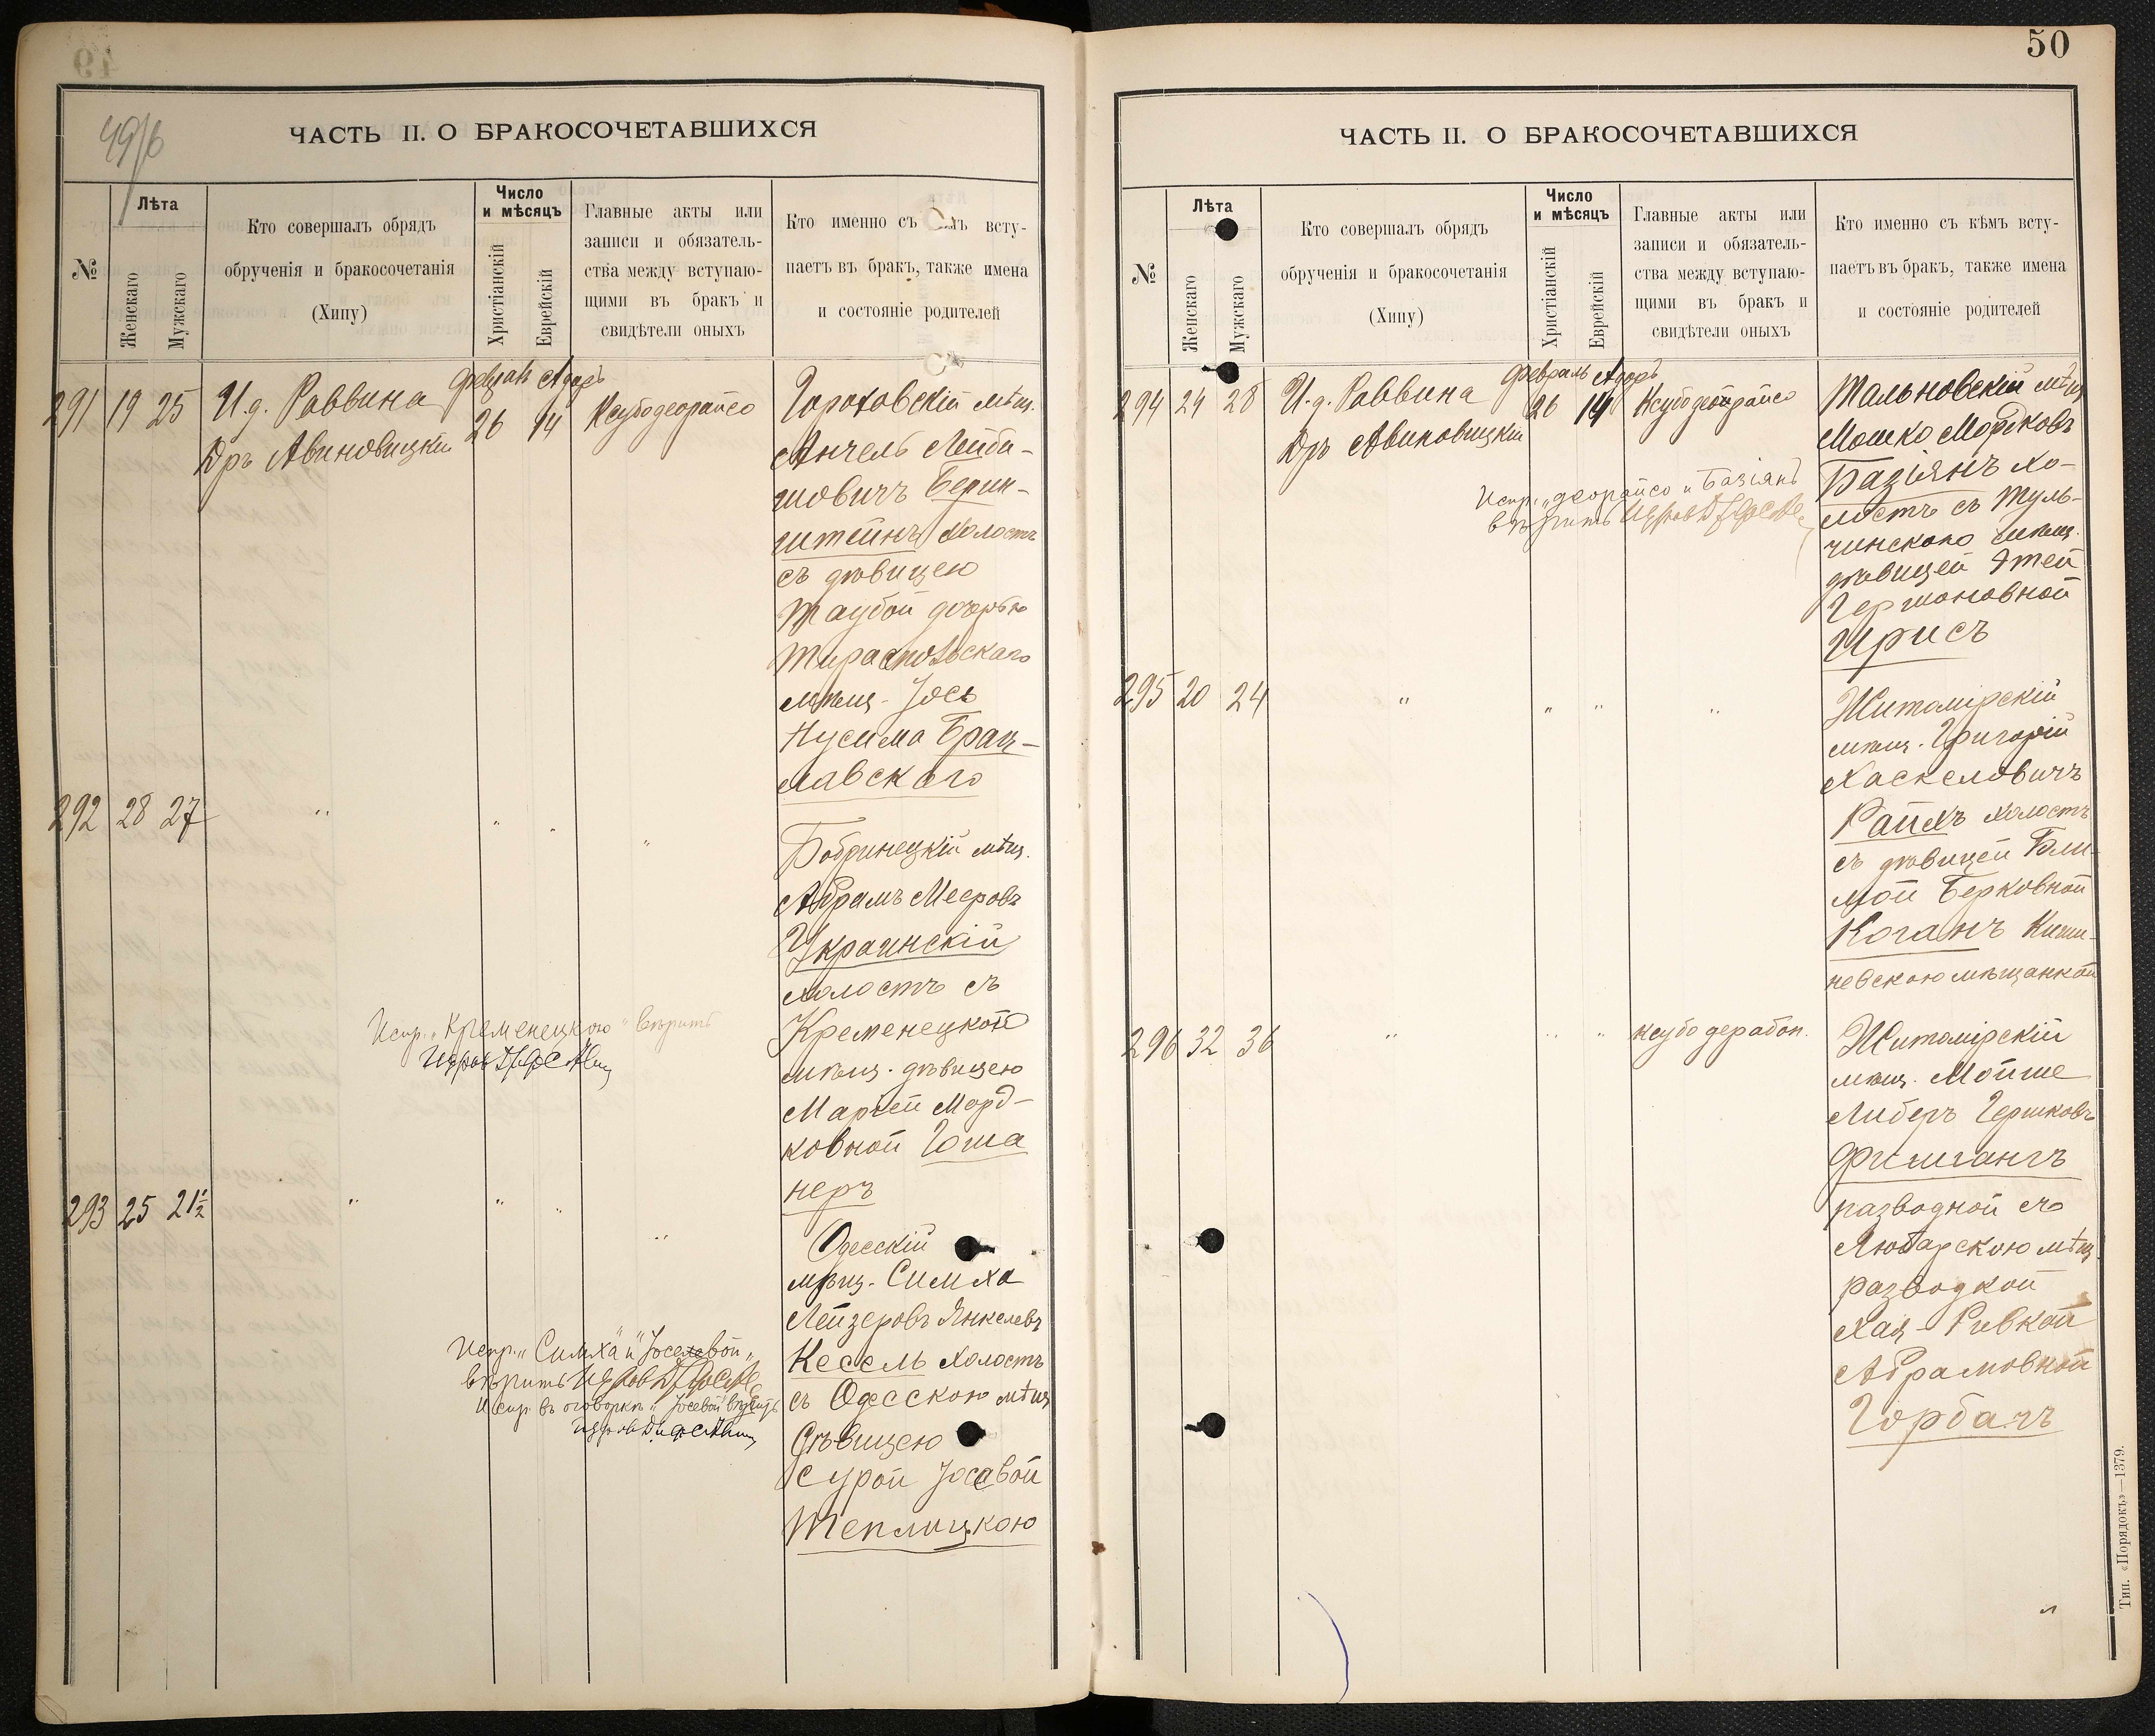 49/б
ЧАСТЬ II. О БРАКОСОЧЕТАВШИХСЯ
№
Лѣта
Женскаго
Мужскаго
Кто совершалъ обрядъ
обрученія и бракосочетанія
(Хипу)
Число
и мѣсяцъ
Христіанскій
Еврейскій
Главные акты или
записи и обязатель-
ства между вступаю-
щими въ бракъ и
свидѣтели оныхъ
Кто именно съ вступ-
паетъ въ бракъ, также имена
и состояніе родителей
291 19 25 И.д. Раввина Адаръ
Др. Авиновицкій 26 14 Ксубодеорайсо
Гороховскій мѣщ.
Анчель Лейби-
шовичъ Берин-
штейнъ холостъ
съ дѣвицею
Таубой дочерью
Тираспольскаго
мѣщ. Іось
Нусима Брац-
лавскаго
292 28 27 " " " "
Бобринецкій мѣщ.
Абрамъ Мееровъ
Украинскій
холостъ съ
Кременецкою
мѣщ. дѣвицею
Маріей Морд-
ковной Гоша
неръ
Испр. "Кременецкою" вѣрить
293 25 21½ " " " "
Одесскій
мѣщ. Симха
Лейзеровъ Янкелевъ
Кесель холостъ
съ Одесскою мѣщ.
дѣвицею
Сурой Іосевой
Теплицкою
Испр. "Симха" и "Іосевой"
вѣрить
Испр. въ оговоркѣ "Іосевой" вѣрить
50
ЧАСТЬ II. О БРАКОСОЧЕТАВШИХСЯ
№
Лѣта
Женскаго
Мужскаго
Кто совершалъ обрядъ
обрученія и бракосочетанія
(Хипу)
Число
и мѣсяцъ
Христіанскій
Еврейскій
Главные акты или
записи и обязатель-
ства между вступаю-
щими въ бракъ и
свидѣтели оныхъ
Кто именно съ кѣмъ всту-
паетъ въ бракъ, также имена
и состояніе родителей
294 24 28 И.д. Раввина Февраль Адаръ
Др. Авиновицкій 26 14 Ксубодеорайсо
Тальновскій мѣщ.
Мошко Мордковъ
Базіянъ хо-
лостъ съ Туль-
чинскою мѣщ.
дѣвицей Этей
Гершоновной
Ирисъ
Испр. "деорайсо и Базіянъ"
вѣрить
295 20 24 " " " "
Житомірскій
мѣщ. Григорій
Хаскелевичъ
Райхъ холостъ
съ дѣвицей
Берковной
Коганъ Киши-
невскою мѣщанкой
296 32 36 " " " ксубо дерабон.
Житомірскій
мѣщ. Мойше
Либеръ Гершковъ
Фишгангъ
разводной съ
Любарскою мѣщ.
разводкой
Хая-Ривкой
Абрамовной
Горбачъ
Тип. «Порядокъ»—1379.